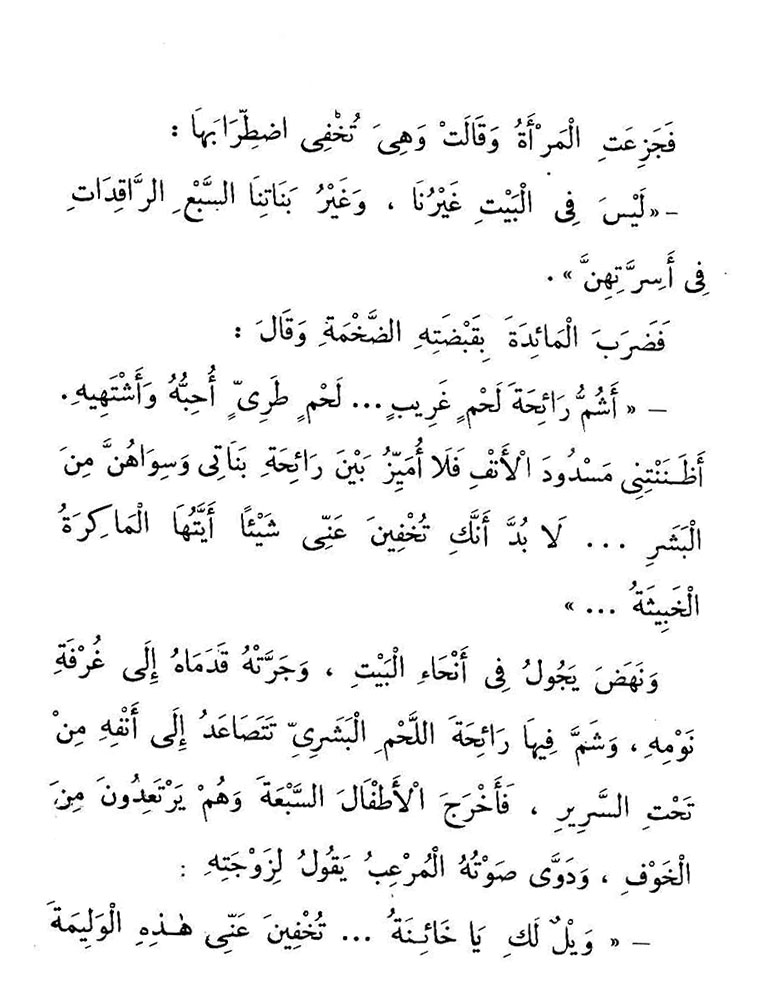 فَجَزِعَتِ الْمَرْأَةُ وَقَالَتْ وَهِىَ تُخْفِى اضطِّرَابَهَا :
– «لَيْسَ فِى الْبَيْتِ غَيْرُنَا ، وَغَيْرُ بَنَاتِنَا السَّبْعِ الرَّاقِدَاتِ
فِى أَسِرَّتِهِنَّ » .
فَضَرَبَ الْمَائِدَةَ بِقَبْضَتِهِ الضَّخْمَةِ وَقَالَ :
– « أَشُمُّ رَائِحَةَ لَحْمٍ غَرِيبٍ ... لَحْمٍ طَرِىٍّ أُحِبُّهُ وَأَشْتَهِيهِ.
أَظَنَنْتِنِى مَسْدُودَ الْأَنْفِ فَلَا أُمَيِّزُ بَيْنَ رَائِحَةِ بَنَاتِى وَسِوَاهُنَّ مِنَ
الْبَشَرِ ... لَا بُدَّ أَنَّكِ تُخْفِينَ عَنِّى شَيْئًا أَيَّتُهَا الْمَاكِرَةُ
الْخَبِيثَةُ ... »
وَنَهَضَ يَجُولُ فِى أَنْحَاءِ الْبَيْتِ ، وَجَرَّتْهُ قَدَمَاهُ إِلَى غُرْفَةِ
نَوْمِهِ ، وَشَمَّ فِيهَا رَائِحَةَ اللَّحْمِ الْبَشَرِىِّ تَتَصَاعَدُ إِلَى أَنْفِهِ مِنْ
تَحْتِ السَّرِيرِ ، فَأَخْرَجَ الْأَطْفَالَ السَّبْعَةَ وَهُمْ يَرْتَعِدُونَ مِنَ
الْخَوْفِ ، وَدَوَّى صَوْتُهُ الْمُرْعِبُ يَقُولُ لِزَوْجَتِهِ :
– « وَيْلٌ لَكِ يَا خَائِنَةُ ... تُخْفِينَ عَنِّى هٰذِهِ الْوَلِيمَةَ